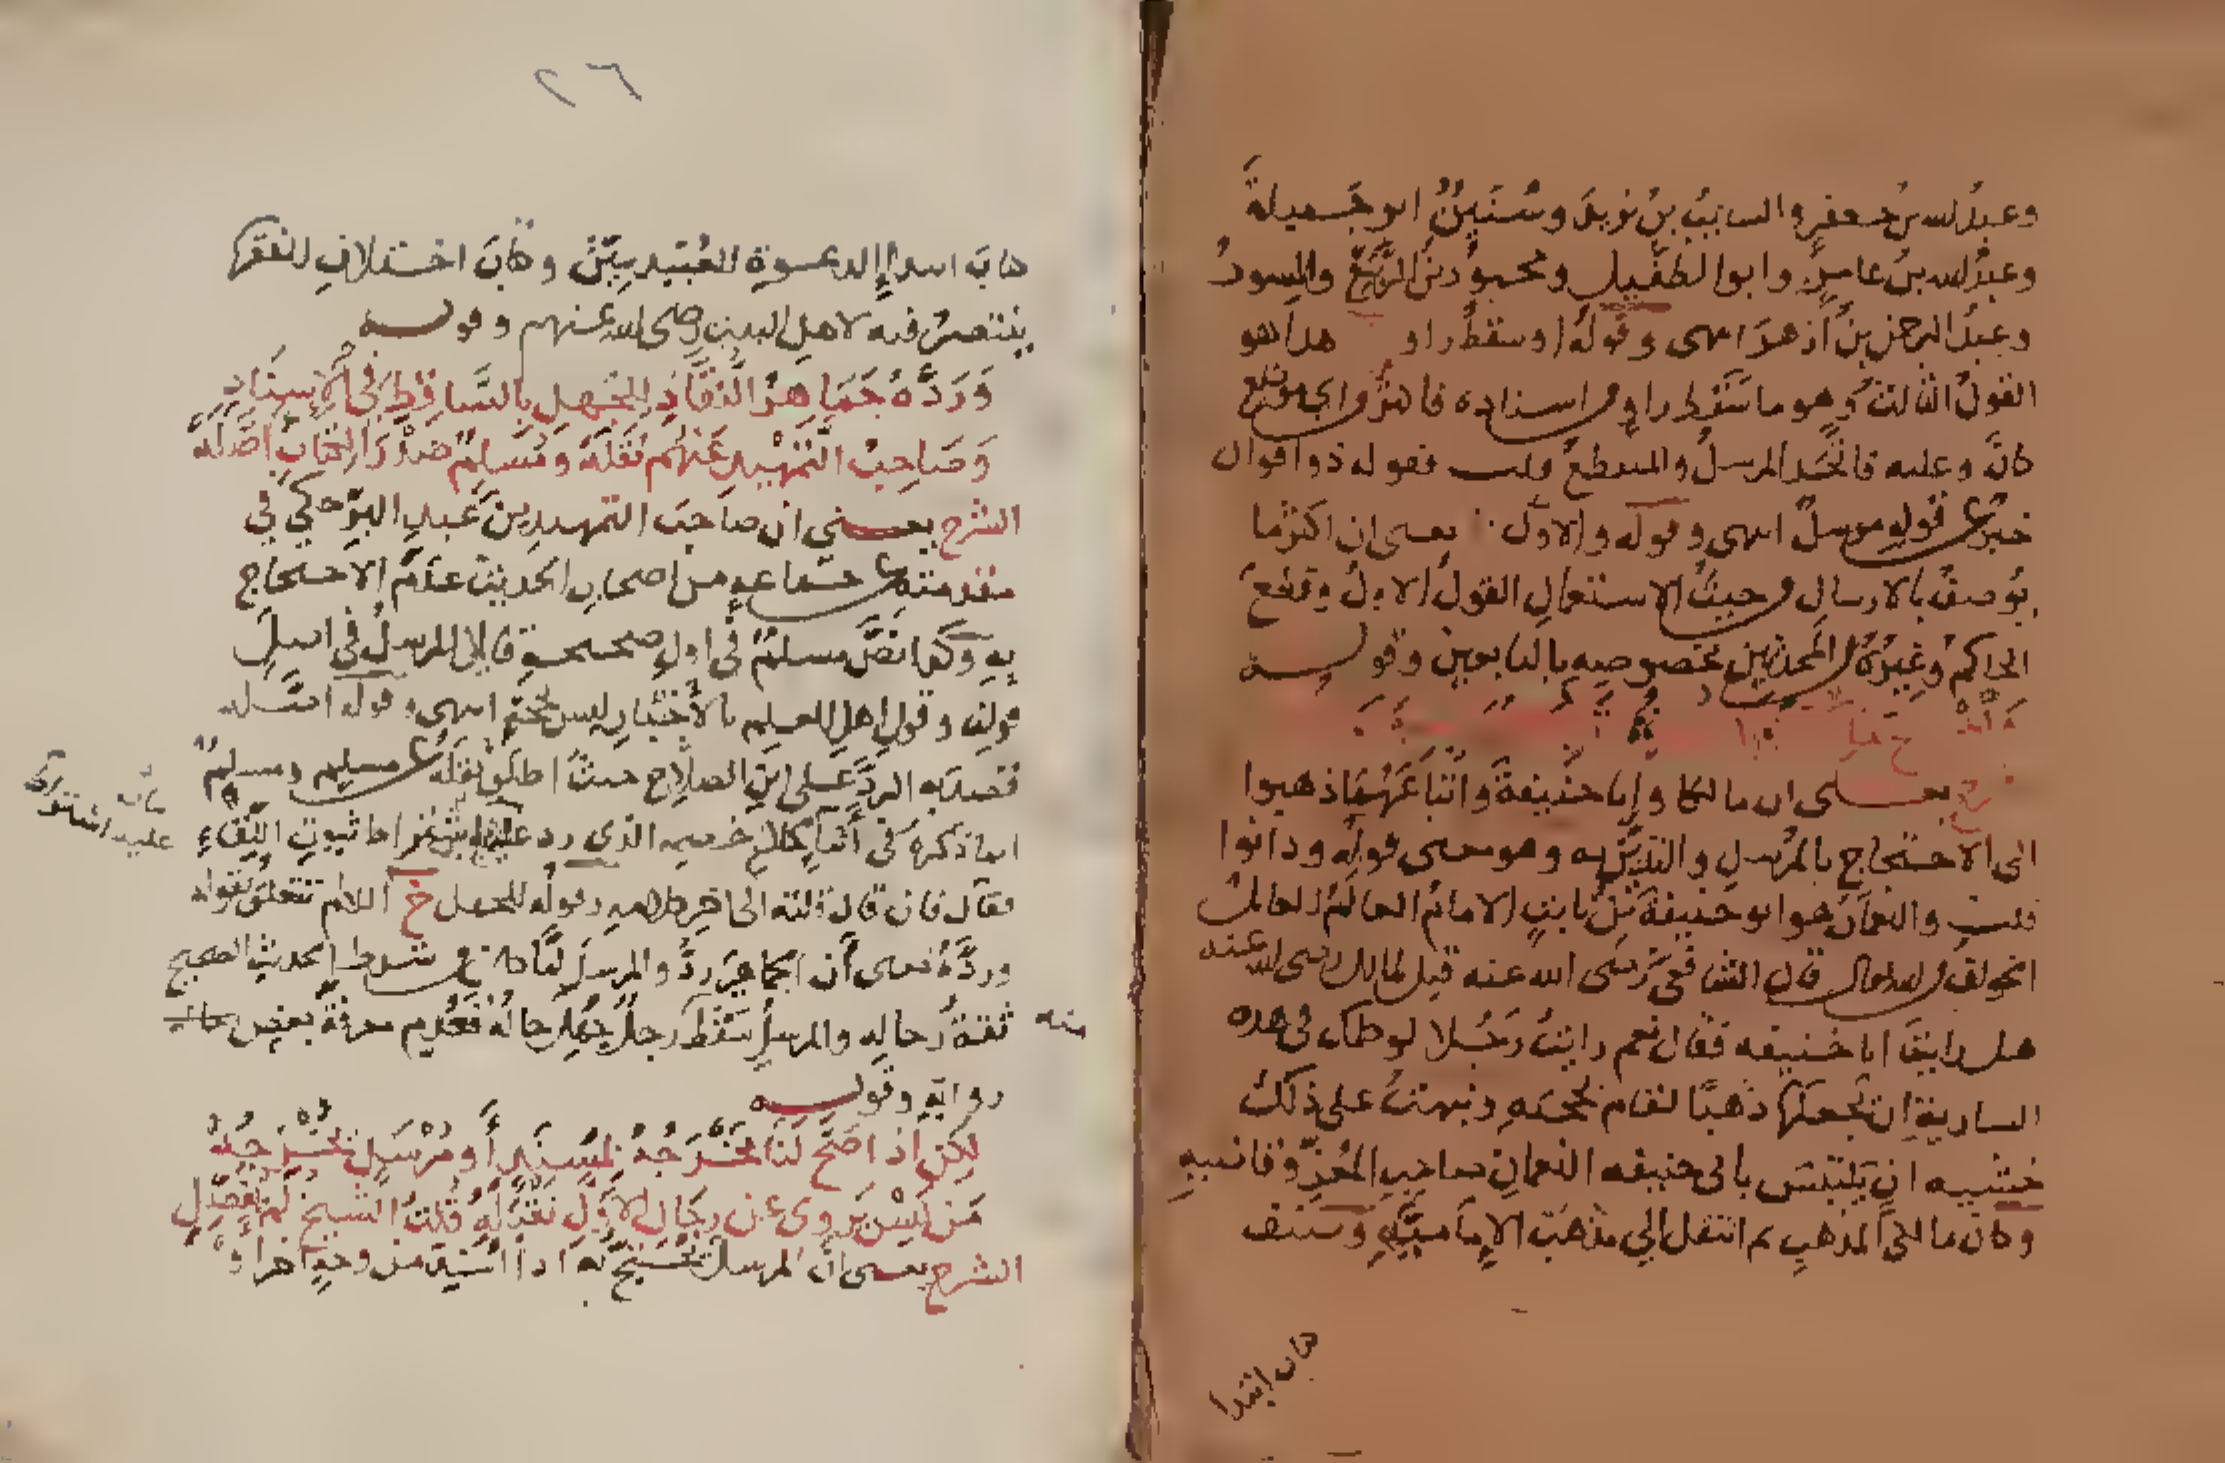 وعبدالله بن جعفر والسايب بن يزيد وسُنَينٌ ابو جَميلة
وعبدالله بن عامرٍ وابوا الطفيل ومحمود بن الرَّبيع والمسورُ
وعبدُ الرحمن بنُ أزهرَ انتهى وقوله او سقطُ راو هذا هو
القولُ الثالثُ وهو ما سَقَط راوٍ من اسناده فاكثر واى موضع
كانَ وعليه فاتحد المرسلُ والمنقطعُ قلت فقوله ذو اقوال
خبرٌ عن قولِه مرسلٌ انتهى وقوله والاول يعنى ان اكثر ما
يُوصفُ بالارسال من حيثُ الاستعمالِ القولُ الاولُ وقطعَ
الحاكمُ وغيرُهُ من المحدثين بخصوصيه بالتابعين وقوله
يعنى ان مالكا وابا حنيفةَ واتباعَهُمَا ذهبوا
الى الاحتجاج بالمُرسلِ والتديّن به وهو معنى قولِه ودانوا
قلت والنعمانُ هو ابو حنيفةَ بنُ ثابتٍ الامامُ العالمُ العاملُ
قال الشافعى رضى الله عنه قيل لمالك رضى الله عنه
هل رايتَ ابا حنيفه فقال نعم رايتُ رَجُلا لو كلمك فى هذه
الساريةِ ان يجعلَها ذهبًا لقام بحجتهِ ونبهتُ على ذلكَ
خشيه ان يَلتبسَ بابى حنيفه النعمانِ صاحبِ المُعزِّ وقاضيهِ
وكان مالكىَّ المذهبِ ثم انتقل الى مذهبِ الإماميَّةِ وصنف
كتاب ابتدا
٢٦
كتابَ ابتدا الدعوةِ للعُبَيديينَ وكتابَ اختلافِ الفقها
ينتصرُ فيه لاهل البيت رضى الله عنهم وقوله
وَرَدَّهُ جَمَاهِرُ النُّقَّادِ لِلجَهلِ بالسَّاقِطِ فى الإسنَادِ
وَصَاحِبُ التَّمهيدِ عَنهُم نَقَلَهُ وَمُسلِمٌ صَدرَ الكِتَابِ أَصَّلَهُ
الشرح يعنى ان صاحبَ التمهيد بن عَبدِ البرِّ حكى فى
مقدمتهِ عن جماعةٍ من اصحابِ الحديث عَدَمَ الاحتجاج
بهِ وكذا نصَّ مسلمٌ فى اولِ صحيحهِ قايلا المرسلُ فى اصلِ
قولنِا وقولِ اهلِ العلمِ بالأخبارِ ليس بحجةٍ انتهى وقوله اصَّله
قصدَ به الردَّ على ابنِ الصلاح حيثُ اطلقَ نقلَهُ عن مسلمٍ ومسلمٌ
انما ذكرهُ فى أثناءِ كلامِ خصمِه الذى رد عليهِ اشتراط ثبوتِ اللِّقاءِ
كان
عليه اشتراط
فقال فان قال قلته الى اخر كلامهِ وقولُه للجهل خ اللام تتعلق بقوله
وردَّهُ بمعنى أن الجماهيرَ ردُّوا المرسلَ لمَّا كان من شرط الحديثِ الصحيح
ثقةُ رجاله والمرسلُ سَقَطَ منه رجلٌ جُهلِ حالُهُ فعَدُم معرفةُ بعضِ
رواتِهِ وقوله
لَكِن اذا صَحَّ لَنا مَخرَجُهُ بمُسنَدٍ أَو مُرسَلٍ يُخرِجُهُ
مَن لَيسَ يَروِى عَن رِجَالِ الاوَّلِ نَقبَلهُ قُلتُ الشيخُ لَم يُفَصِّلِ
الشرح يعنى أن المرسلَ يُحتجُّ به اذا أُسنِدَ من وجهٍ اخرَ أو